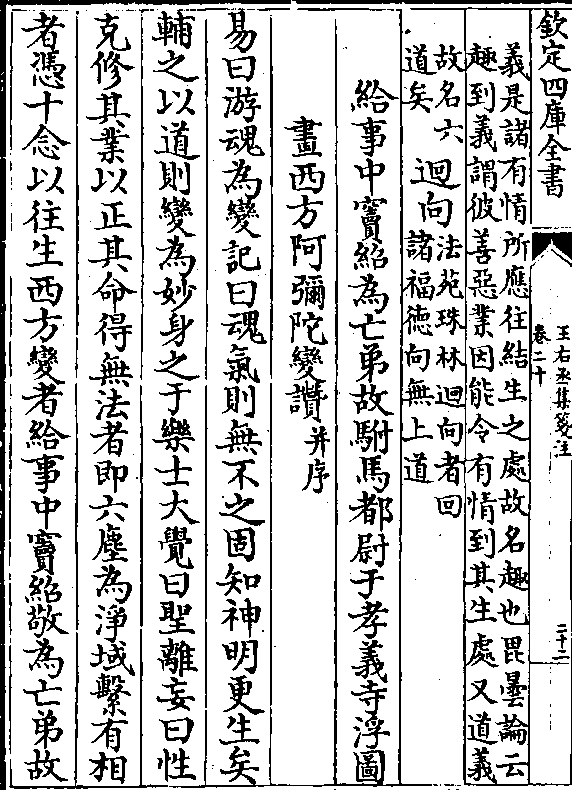 欽定四庫全書
王右丞集箋注
卷二十
二十二
義是諸有情所應往結生之處故名趣也毘曇論云
趣到義謂彼善惡業因能令有情到其生處又道義
故名六
道矣
迴向
法苑珠林迴向者回
諸福德向無上道
給事中竇紹為亡弟故駙馬都尉于孝義寺浮圖
畫西方阿彌陀變讚并序
易曰游魂為變記曰魂氣則無不之固知神明更生矣
輔之以道則變為妙身之于樂土大覺曰聖離妄曰性
克修其業以正其命得無法者即六塵為淨域繫有相
者憑十念以往生西方變者給事中竇紹敬為亡弟故